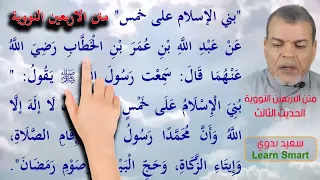 "بني الإسلام على خمس" متن الأربعين النووية
عَنْ عَبْدِ اللَّهِ بْنِ عُمَرَ بْنِ الْخَطَّابِ رَضِيَ اللَّهُ
عَنْهُمَا قَالَ: سَمِعْت رَسُولَ ﷺ يَقُولُ: "
بُنِيَ الْإِسْلَامُ عَلَى خَمْسٍ لَا إلَهَ إلَّا
اللَّهُ وَأَنَّ مُحَمَّدًا رَسُولُ إِقَامِ الصَّلَاةِ،
وَإِيتَاءِ الزَّكَاةِ، وَحَجِّ الْبَيْتِ وَصَوْمِ رَمَضَانَ".
متن الأربعين النووية
الحديث الثالث
سعيد بدوي
Learn Smart